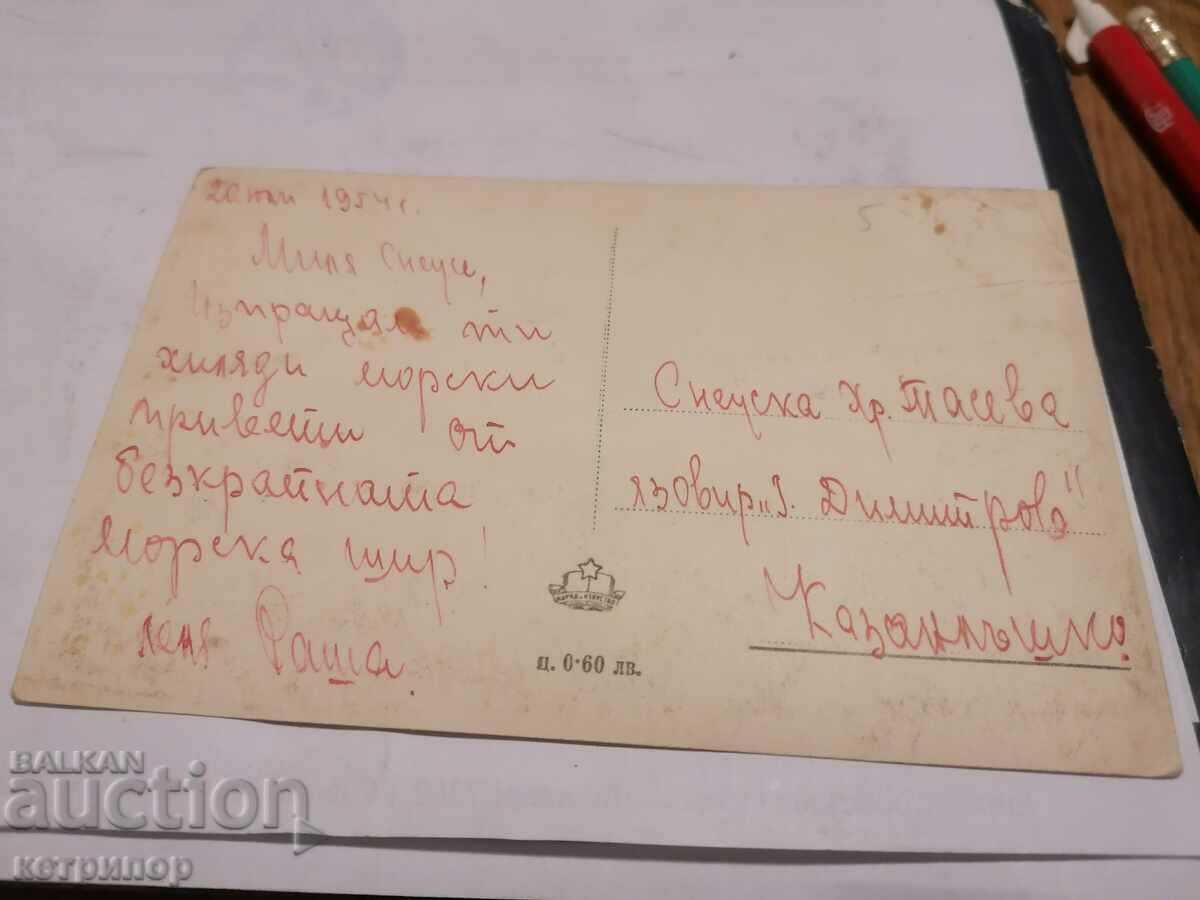 20 юли 1954 г.
Миля Снеуе,
Изпращам ти
хиляди морски
привети от
безкрайната
морска шир!
леля Раша.
5
Снеуска Хр. Тасева
язовир „Г. Димитров"
Казанлъшко
ц. 0·60 лв.
BALKAN
auction
кетрипор